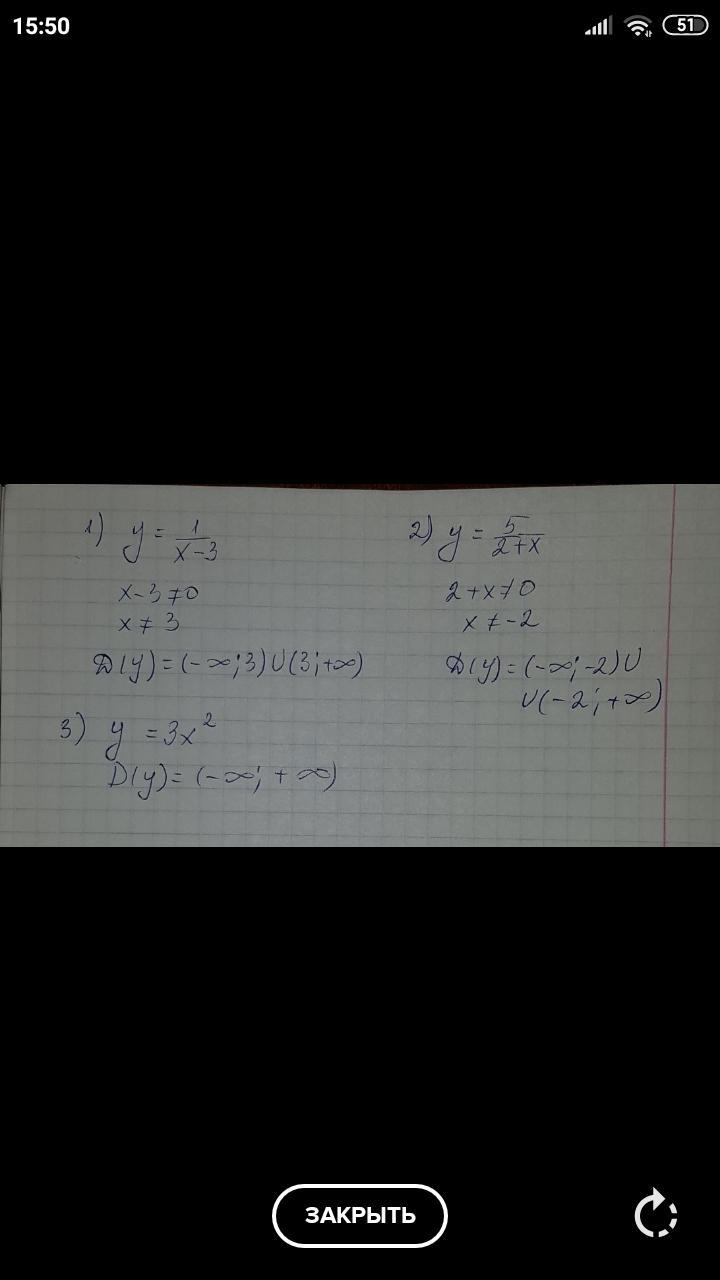 15:50
51
1) y = 1/(x-3)
x-3≠0
x ≠ 3
D(y)=(-∞;3)U(3;+∞)
2) y = 5/(2+x)
2+x≠0
x ≠ -2
D(y)=(-∞;-2)U
U(-2;+∞)
3) y = 3x²
D(y)=(-∞;+∞)
ЗАКРЫТЬ